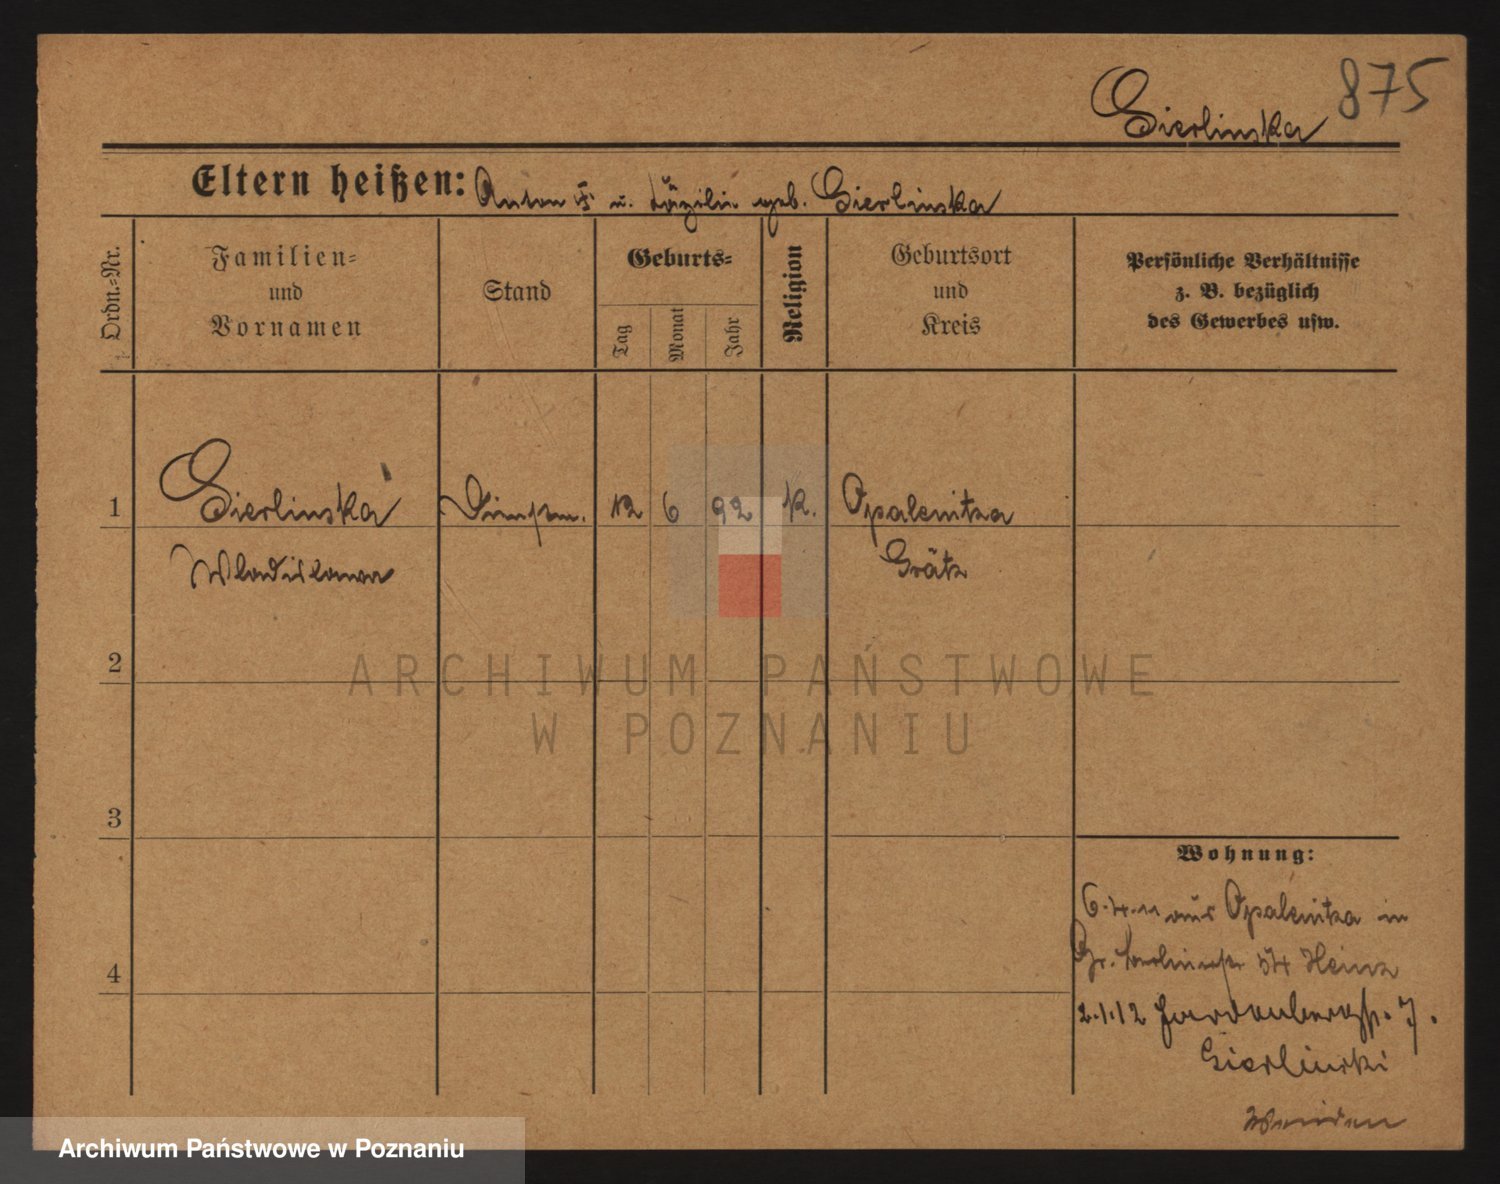 875
Gierlinska
Eltern heißen: Anton † u. Cäzilie geb. Gierlinska
Ordn.-Nr.
Familien- und Vornamen
Stand
Geburts-
Tag
Monat
Jahr
Religion
Geburtsort und Kreis
Persönliche Verhältnisse
z. B. bezüglich
des Gewerbes usw.
1 Gierlinska 12 6 92 k. Opalenitza
Wladislawa Grätz
2
3
4
Wohnung:
6.4.11 aus Opalenitza in
Gr. Berlinerstr. 54 Heinz
2.1.12 Hardenbergstr. 7.
Gierlinski
Wenden
ARCHIWUM PAŃSTWOWE
W POZNANIU
Archiwum Państwowe w Poznaniu